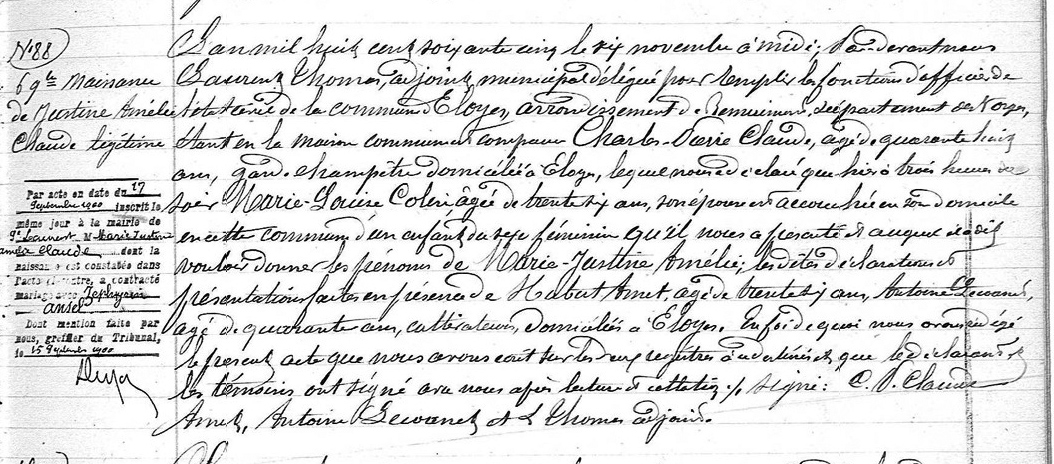 N° 88
69e Naissance
de Justine Amélie
Claude légitime
Par acte en date du 17
Septembre 1900 inscrit le
même jour à la mairie de
Marie Justine
Amélie Claude dont la
naissance est constatée dans
l'acte ci-contre, a contracté
mariage avec Zéphyrin
Ansel
Dont mention faite par
nous, greffier du Tribunal,
le 15 Septembre 1900
L'an mil huit cent soixante cinq le six novembre à midi; Par devant nous
Laurent Thomas, adjoint municipal délégué pour remplir les fonctions d'officier de
l'état civil de la commune d'Eloyes, arrondissement de Remiremont, département des Vosges,
étant en la maison commune est comparu Charles-Pierre Claude, âgé de quarante huit
ans, garde champêtre domicilié à Eloyes, lequel nous a déclaré que hier à trois heures du
soir Marie-Louise Colin âgée de trente six ans, son épouse est accouchée en son domicile
en cette commune d'un enfant du sexe féminin qu'il nous a présenté et auquel il a dit
vouloir donner les prénoms de Marie-Justine Amélie; les dites déclaration et
présentation faites en présence de Hubert Amet, âgé de trente ans, Antoine
âgé de quarante ans, cultivateurs, domiciliés à Eloyes. En foi de quoi nous avons rédigé
le présent acte que nous avons écrit sur les deux registres à ce destinés et que le déclarant et
les témoins ont signé avec nous après lecture et collation ./. Signé: C. P. Claude
Amet, Antoine et L Thomas adjoint.